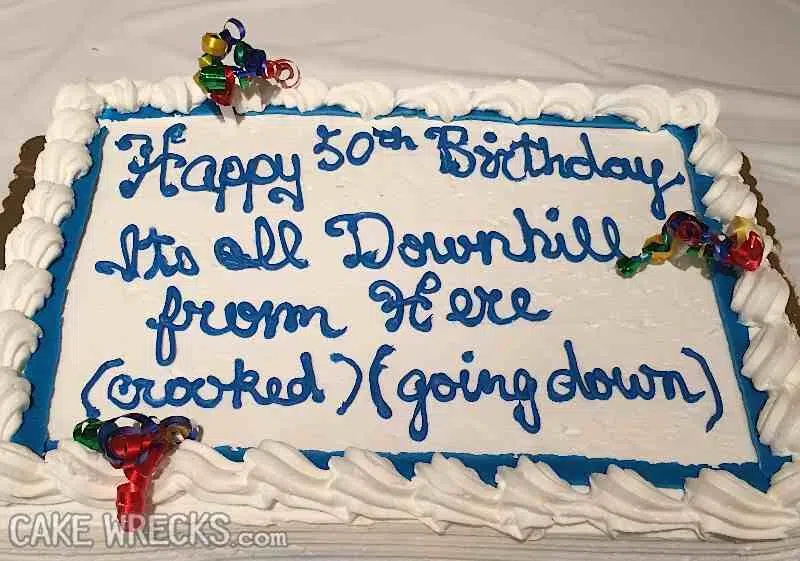 Happy 50th Birthday
Its all Downhill
from Here
(crooked) (going down)
CAKE WRECKS.com